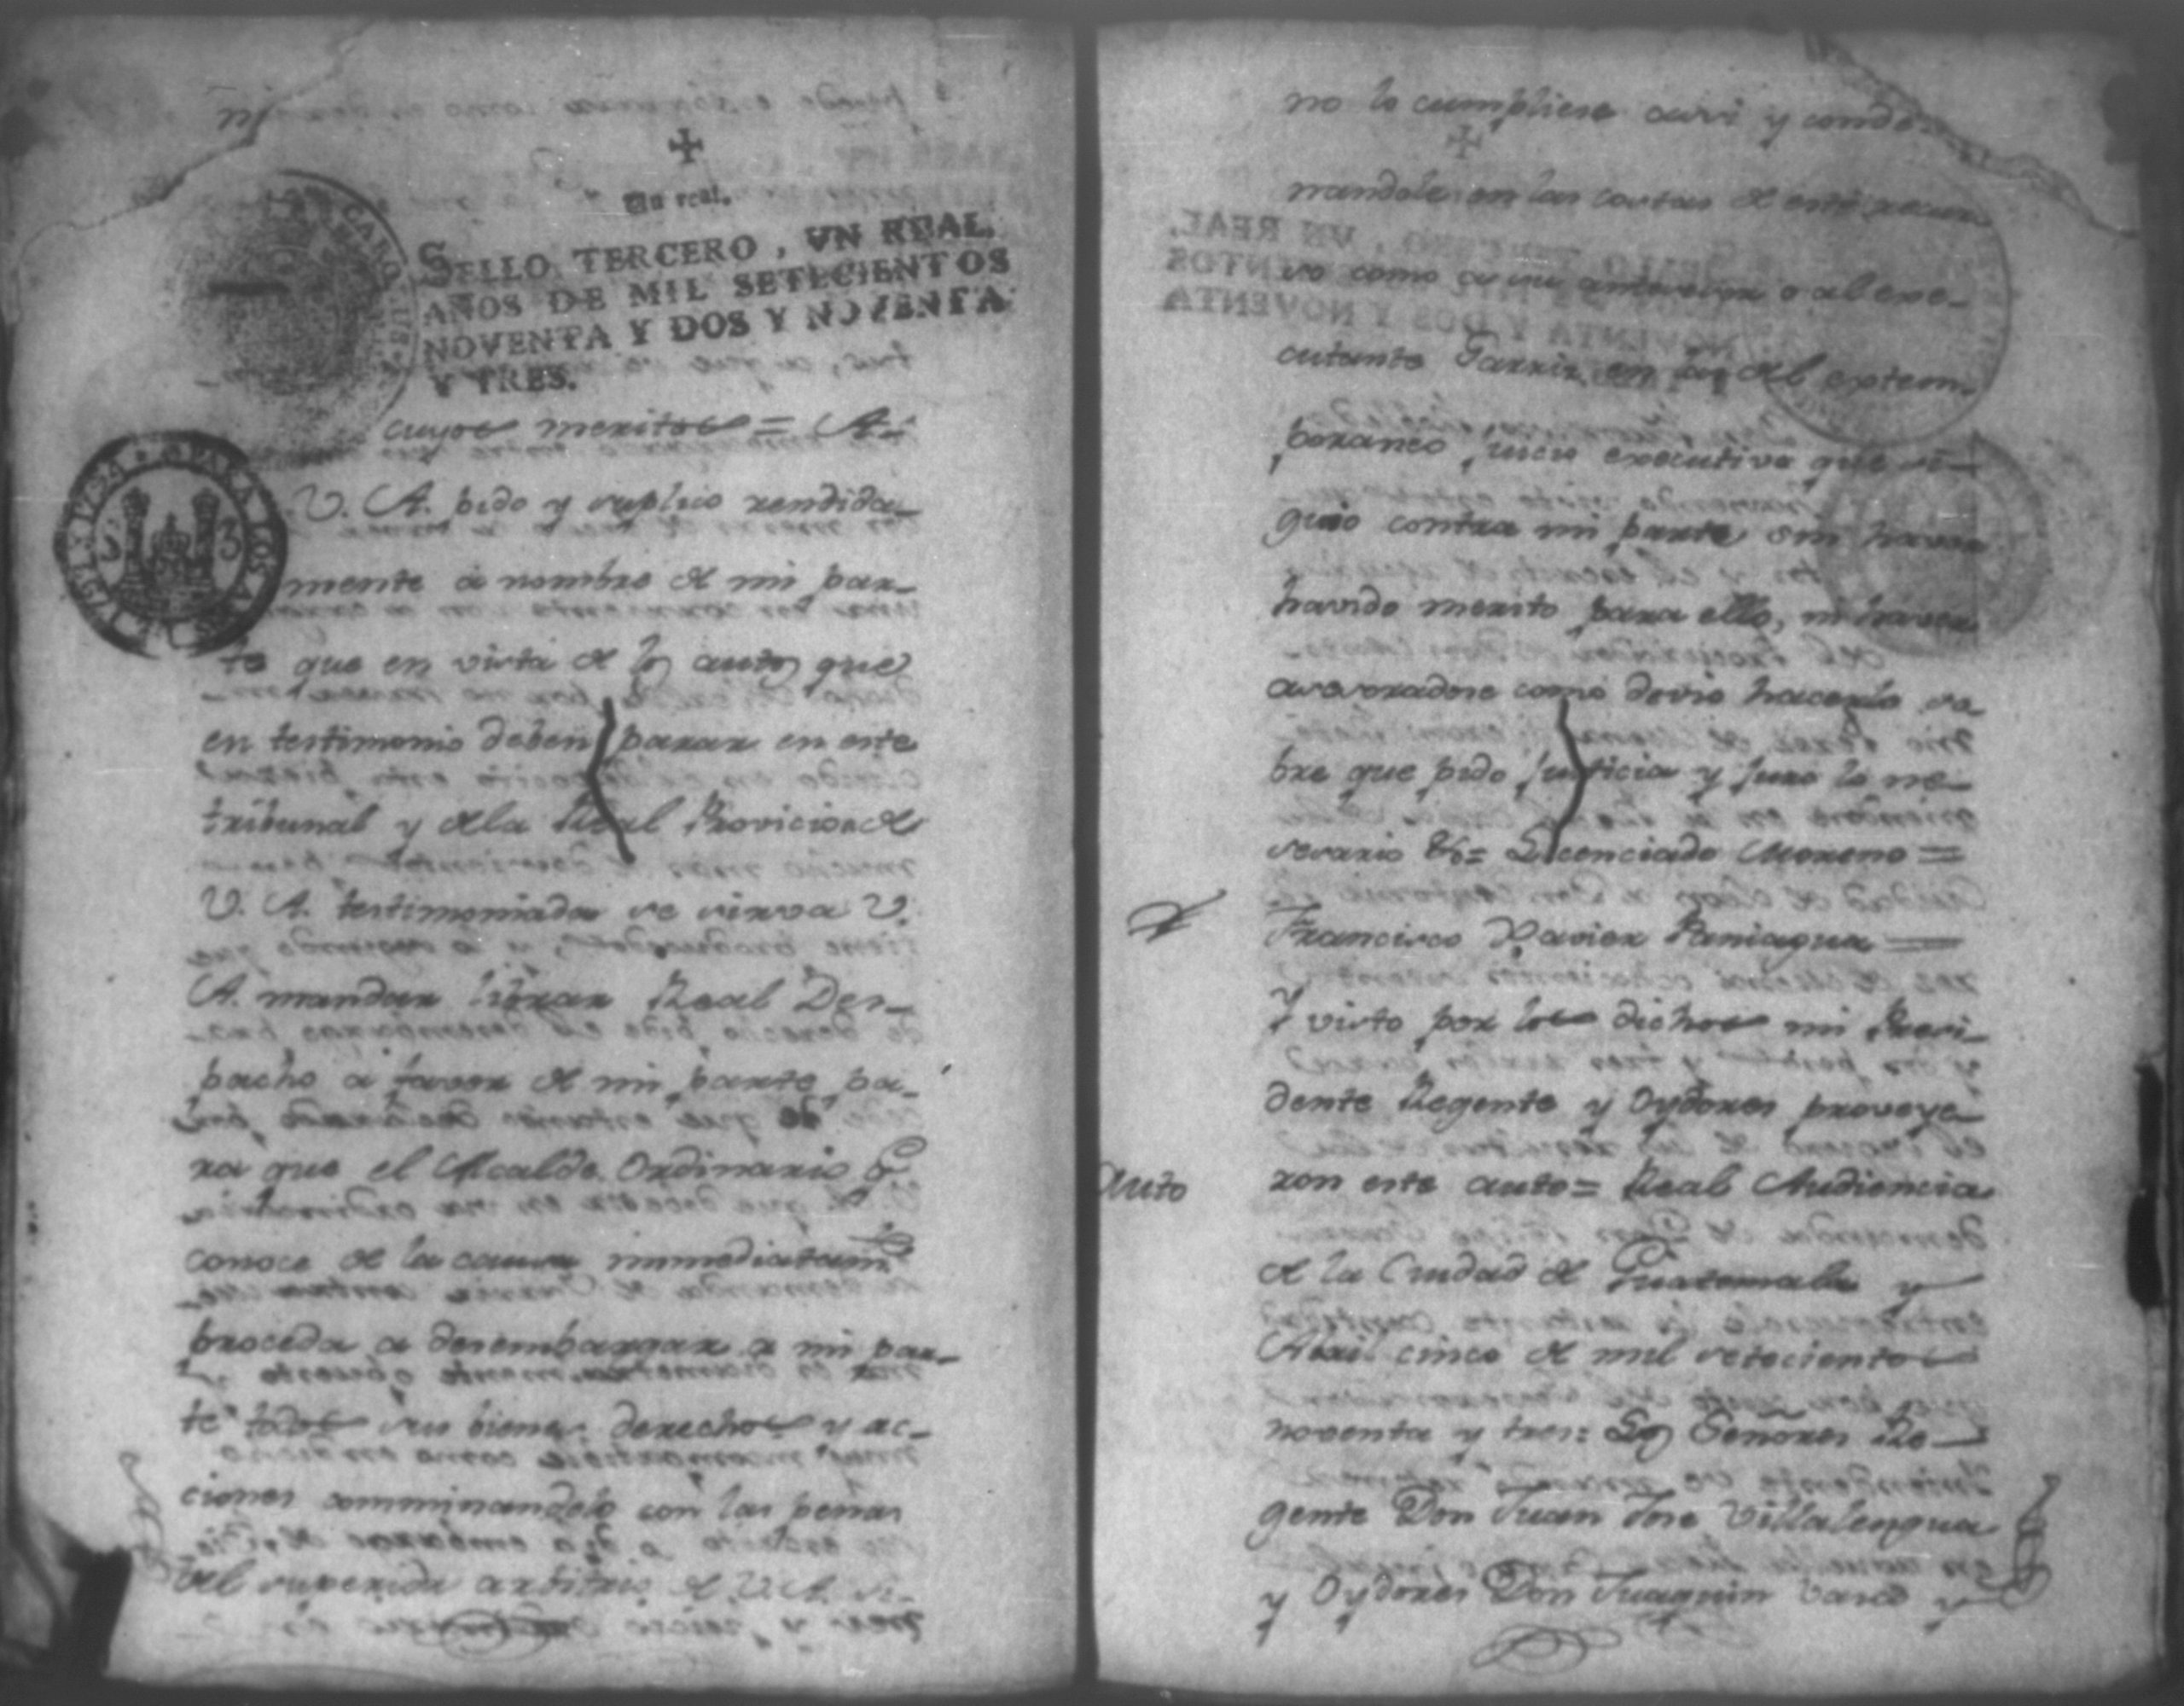 Un real.
SELLO TERCERO, VN REAL,
AÑOS DE MIL SETECIENTOS
NOVENTA Y DOS Y NOVENTA
Y TRES.
cuyos meritos = A
V. A. pido y suplico rendida-
mente à nombre de mi par-
te que en vista de los autos que
en testimonio deben parar en este
tribunal y de la Real Provicion de
V. A. testimoniada se sirva V.
A. mandar librar Real Des-
pacho a favor de mi parte pa-
ra que el Alcalde Ordinario q.e
conoce de la causa inmediatam.te
proceda a desembargar a mi par-
te todos sus bienes derechos y ac-
ciones comminandolo con las penas
del superior arbitrio de V. A. si
no lo cumpliere assi y conde-
nandole en las costas de este recur-
so como a su o al exe-
cutante Farriz en los del extem-
poraneo juicio executivo que si-
guio contra mi parte sin haver
havido merito para ello, ni haver
asesoradose como devio hacerlo so-
bre que pido justicia y juro lo ne-
sesario &a = Licenciado Moreno =
Francisco Xavier Paniagua =
Y visto por los dichos mi Presi-
dente Regente y Oydores proveye-
Auto
ron este auto = Real Audiencia
de la Ciudad de Guatemala y
Abril cinco de mil setecientos
noventa y tres: Los Señores Re-
gente Don Juan Jose Villalengua
y Oydores Don Juaquin Vasco y